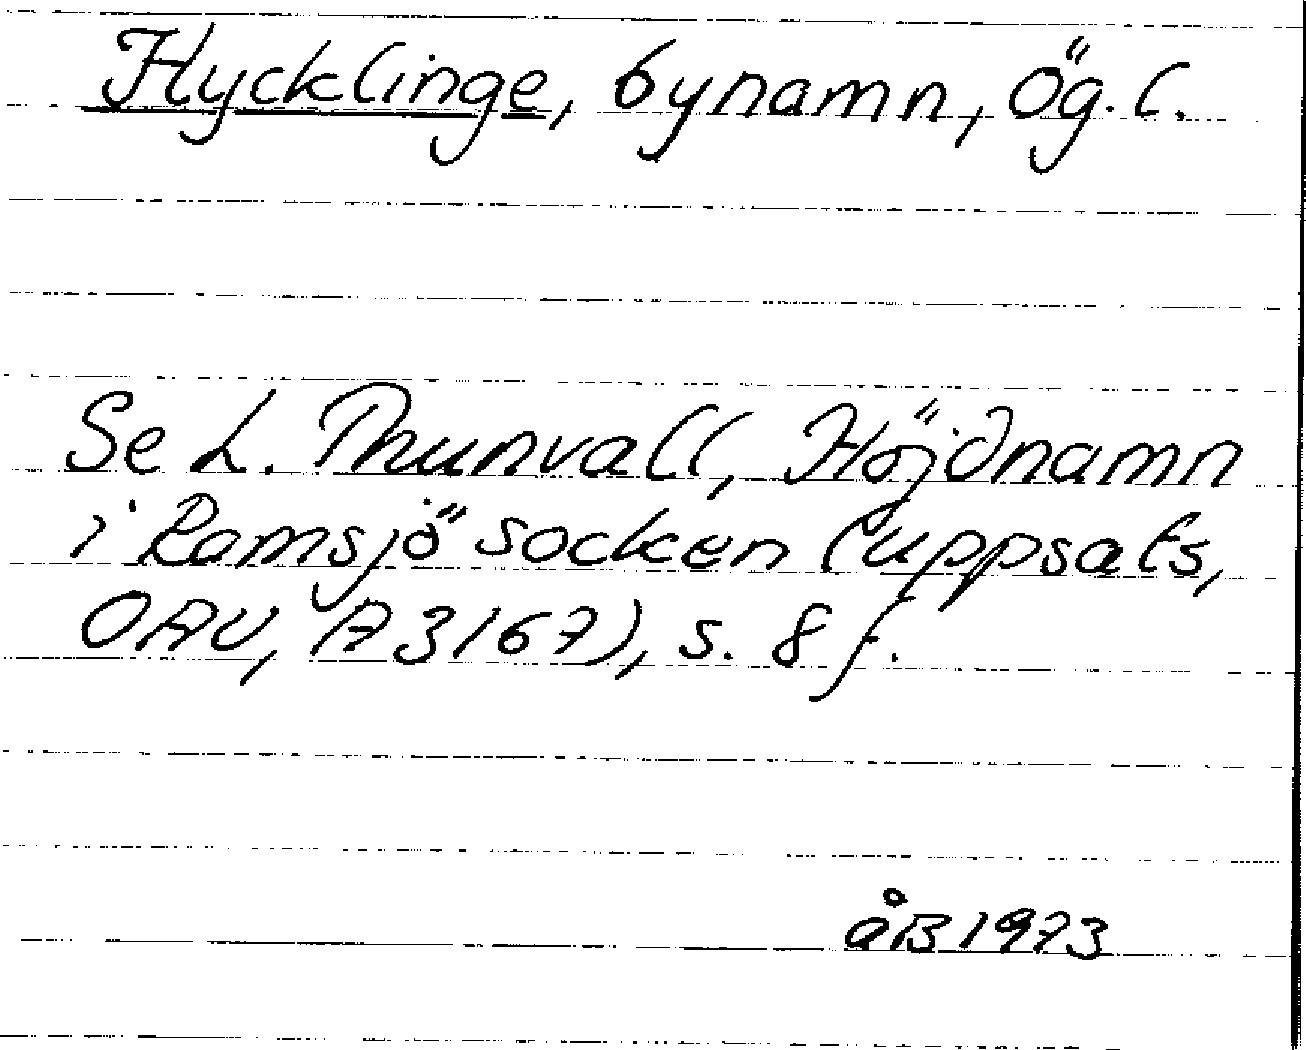 Hycklinge, bynamn, Ög. l.
Se L. Thunvall, Höjdnamn
i Ramsjö socken (uppsats,
OAU, A3167), s. 8 f.
åB 1973